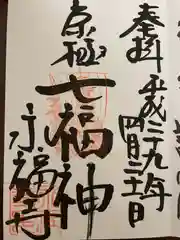 奉拝 平成二十九年
四月二十日
京極
七福神
永福寺